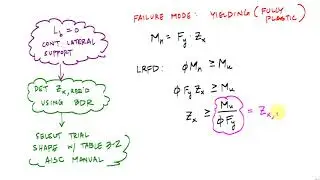 L_b = 0
CONT LATERAL
SUPPORT
DET Z_x,REQ'D
USING BDR
SELECT TRIAL
SHAPE W/ TABLE 3-2
AISC MANUAL
FAILURE MODE: YIELDING (FULLY
PLASTIC)
M_n = F_y · Z_x
LRFD: ϕM_n ≥ M_u
ϕ F_y Z_x ≥ M_u
Z_x ≥ M_u / ϕ F_y = Z_x,